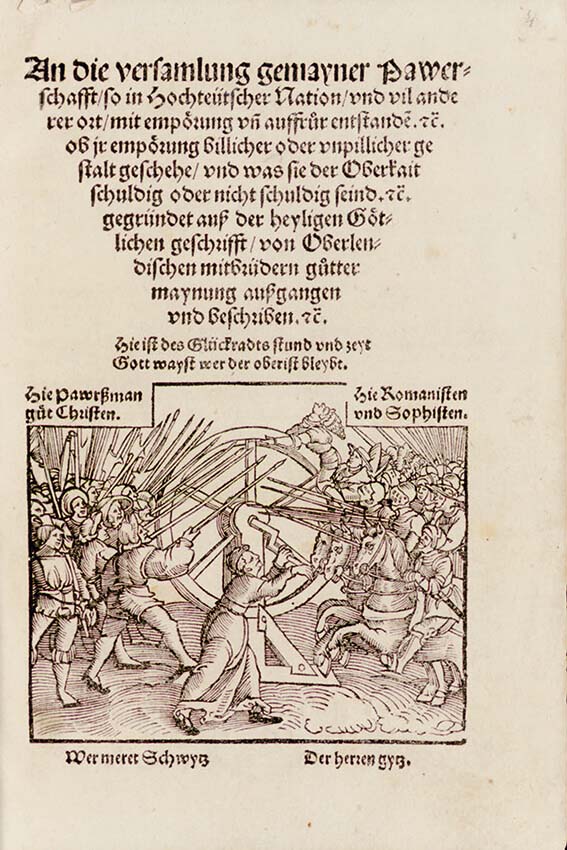 An die versamlung gemayner Pawer⸗
schafft/so in Hochteütscher Nation/vnd vil ande
rer ort/mit empörung vñ auffrůr entstandẽ. ⁊č.
ob jr empörung billicher oder vnpillicher ge
stalt geschehe/ vnd was sie der Oberkait
schuldig oder nicht schuldig seind. ⁊č.
gegründet auß der heyligen Göt⸗
lichen geschrifft/ von Oberlen⸗
dischen mitbrüdern gůtter
maynung außgangen
vnd beschriben. ⁊č.
Hie ist des Glückradts stund vnd zeyt
Gott wayst wer der oberist bleybt.
Hie Pawrßman
gůt Christen.
Hie Romanisten
vnd Sophisten.
Wer meret Schwytz
Der herren gytz.